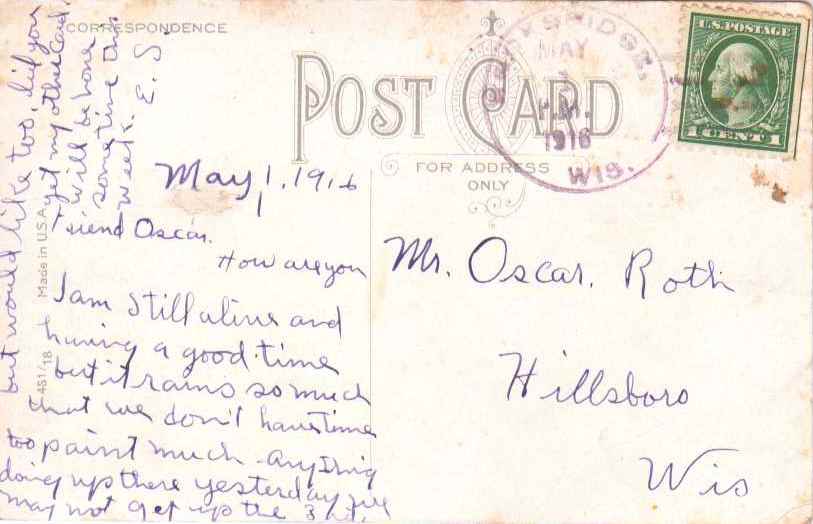 CORRESPONDENCE
POST CARD
FOR ADDRESS
ONLY
BRIDGE,
MAY
P.M.
1916
WIS.
U.S. POSTAGE
1 CENT 1
May 1. 1916
Friend Oscar.
How are you
I am still alive and
having a good time
but it rains so much
that we don't have time
too paint much anything
doing up there yesterday we
may not get up the 3 rd,
but would like too, did you
get my other card,
will be home
sometime this
week. E. S.
Made in U.S.A.
481/18
Mr. Oscar. Roth
Hillsboro
Wis